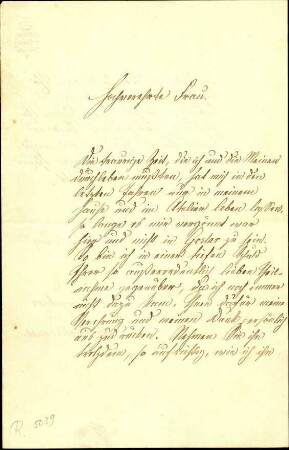 Hochverehrte Frau.
Die traurige Zeit, die ich und die Meinen
durchleben mußten, hat mich in den
letzten Jahren nur in meinem
Hause und im Atelier leben lassen,
so lange es mir vergönnt war
hier und nicht in Goslar zu sein.
So bin ich in einer tiefen Schuld
Ihrer so außerordentlich lieben Theil-
nahme gegenüber, da ich noch immer
nicht dazu kam, Ihnen dafür meine
Verehrung und meinen Dank persönlich
auszudrücken. Nehmen Sie ihn
trotzdem, so aufrichtig, wie ich ihn
R. 5039